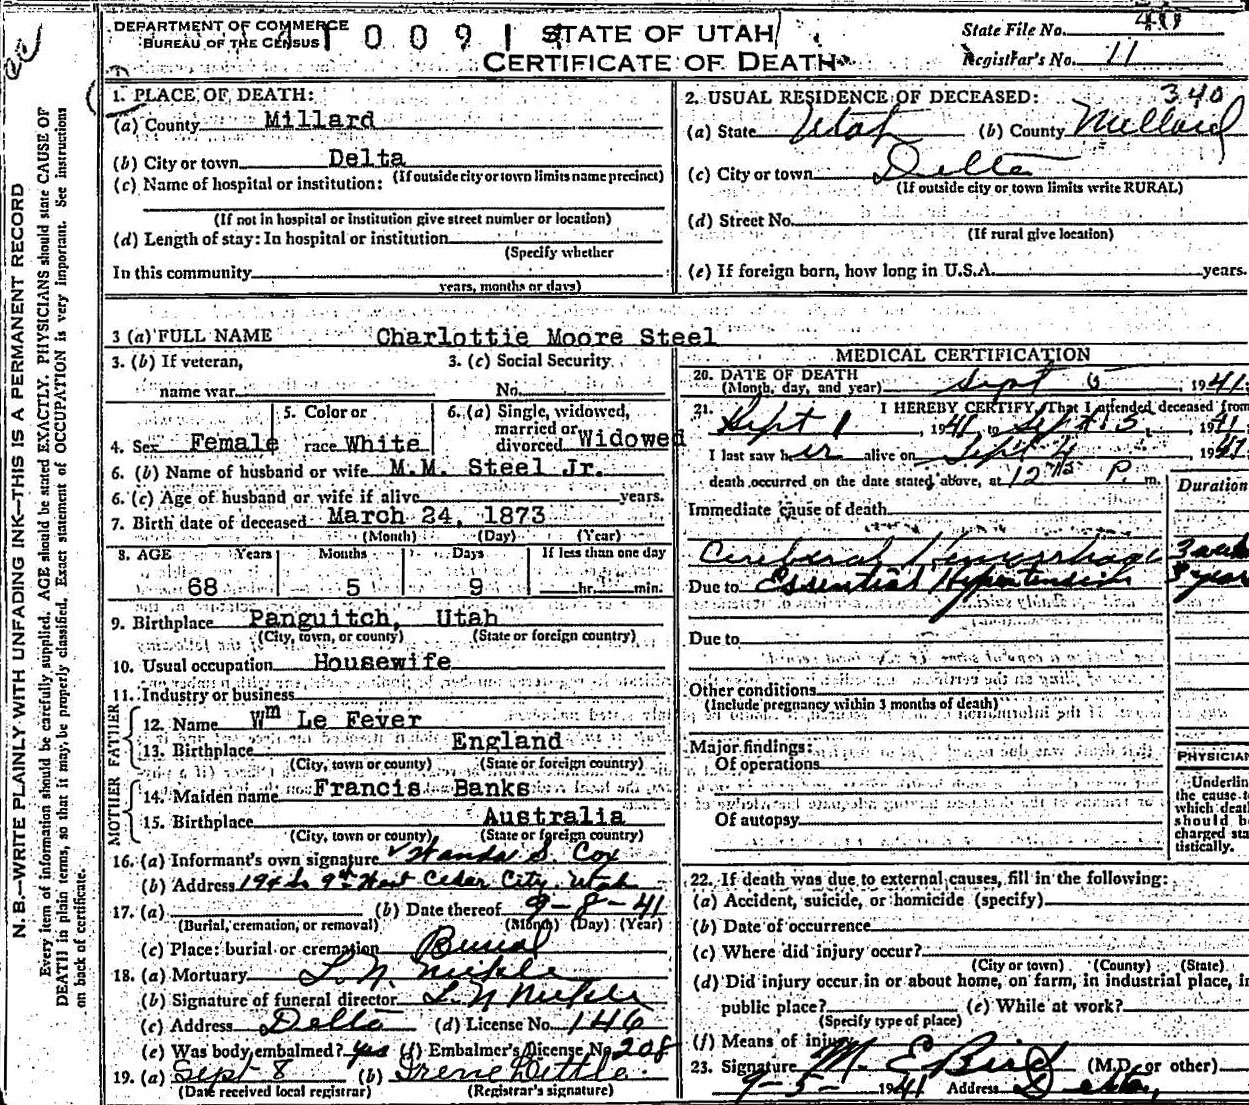 DEPARTMENT OF COMMERCE
BUREAU OF THE CENSUS
STATE OF UTAH
CERTIFICATE OF DEATH
State File No. 40
Registrar's No. 11
N. B.—WRITE PLAINLY WITH UNFADING INK—THIS IS A PERMANENT RECORD
Every item of information should be carefully supplied. AGE should be stated EXACTLY. PHYSICIANS should state CAUSE OF
DEATH in plain terms, so that it may be properly classified. Exact statement of OCCUPATION is very important. See instructions
on back of certificate.
1. PLACE OF DEATH:
(a) County Millard
(b) City or town Delta
(If outside city or town limits name precinct)
(c) Name of hospital or institution:
(If not in hospital or institution give street number or location)
(d) Length of stay: In hospital or institution
(Specify whether
In this community
years, months or days)
2. USUAL RESIDENCE OF DECEASED: 340
(a) State Utah (b) County Millard
(c) City or town Delta
(If outside city or town limits write RURAL)
(d) Street No.
(If rural give location)
(e) If foreign born, how long in U.S.A. years.
3 (a) FULL NAME Charlottie Moore Steel
3. (b) If veteran, 3. (c) Social Security
name war No.
4. Sex Female 5. Color or race White 6. (a) Single, widowed, married or divorced Widowed
6. (b) Name of husband or wife M.M. Steel Jr.
6. (c) Age of husband or wife if alive years.
7. Birth date of deceased March 24, 1873
(Month) (Day) (Year)
8. AGE Years Months Days If less than one day
68 5 9 hr. min.
9. Birthplace Panguitch, Utah
(City, town, or county) (State or foreign country)
10. Usual occupation Housewife
11. Industry or business
FATHER
12. Name Wm Le Fever
13. Birthplace England
(City, town or county) (State or foreign country)
MOTHER
14. Maiden name Francis Banks
15. Birthplace Australia
(City, town or county) (State or foreign country)
16. (a) Informant's own signature Wanda S. Cox
(b) Address 194 So 9th West Cedar City, Utah
17. (a) (b) Date thereof 9-8-41
(Burial, cremation, or removal) (Month) (Day) (Year)
(c) Place: burial or cremation Burial
18. (a) Mortuary L.N. Nickle
(b) Signature of funeral director L. N Nickle
(c) Address Delta (d) License No. 146
(e) Was body embalmed? yes (f) Embalmer's License No. 208
19. (a) Sept 8 (b) Irene
(Date received local registrar) (Registrar's signature)
MEDICAL CERTIFICATION
20. DATE OF DEATH
(Month, day, and year) Sept 5, 1941
21. I HEREBY CERTIFY, That I attended deceased from
Sept 1, 1941 to Sept. 5, 1941
I last saw her alive on Sept 4 1941
death occurred on the date stated above, at 12 P. m.
Duration
Immediate cause of death
Cerebral Hemorrhage 3
Due to Essential Hypertension years
Due to
Other conditions
(Include pregnancy within 3 months of death)
Major findings:
Of operations
Of autopsy
PHYSICIAN
Underlin
the cause t
which deat
should b
charged sta
tistically.
22. If death was due to external causes, fill in the following:
(a) Accident, suicide, or homicide (specify)
(b) Date of occurrence
(c) Where did injury occur?
(City or town) (County) (State)
(d) Did injury occur in or about home, on farm, in industrial place, in
public place? (e) While at work?
(Specify type of place)
(f) Means of injury
23. Signature M. E Bird (M.D. or other)
9-5- 1941 Address Delta,